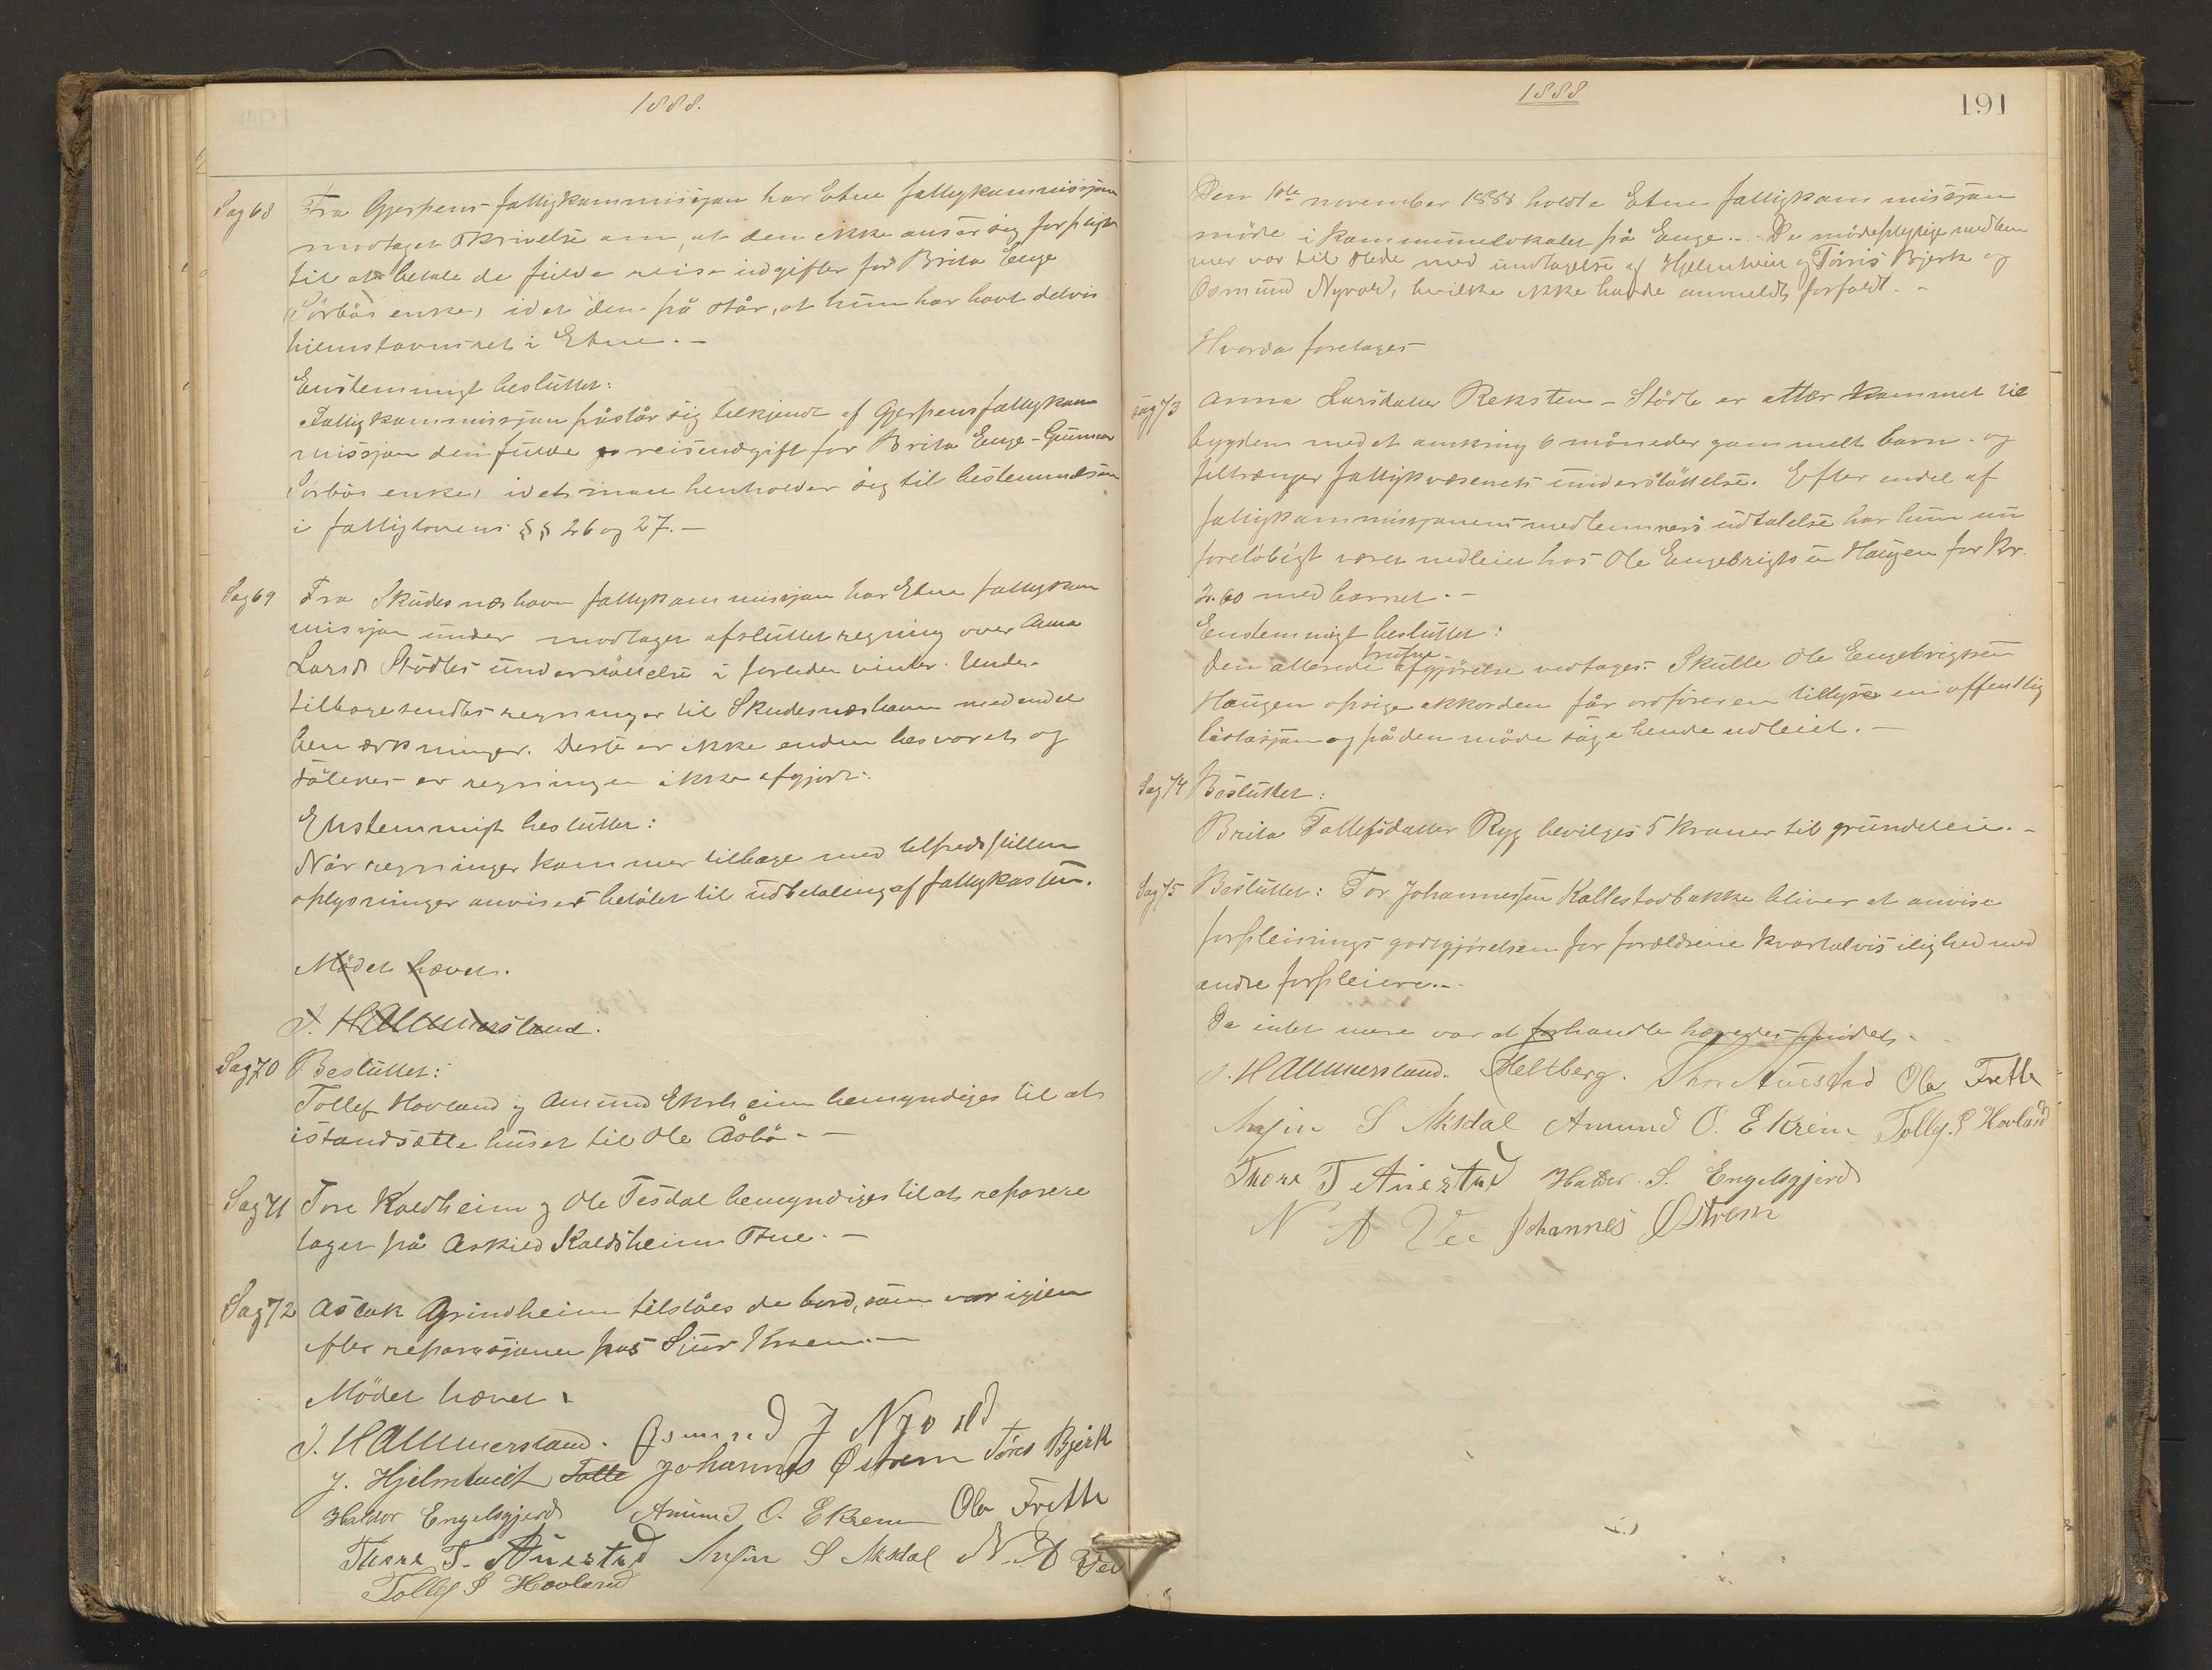 1888.
Sag 68 Fra Gjerpens fattigkommissjon har Etne fattigkommissjon
modtaget skrivelse om, at den ikke anser sig forpligtet
til at betale de fulde reiseudgifter for Brita Enge
Sörbös enke, idet den påstår, at hun har havt delvis
hjemstavnsret i Etne. –
Enstemmigt besluttet:
Fattigkommissjon påstår sig tilkjendt af Gjerpens fattigkom
missjon den fulde reiseudgift for Brita Enge – Gunnar
Sörbös enke, idet man henholder sig til bestemmelsen
i fattiglovens §§ 26 og 27. –
Sag 69 Fra Skudesnæshavn fattigkommissjon har Etne fattigkom
missjon under modtaget afsluttet regning over Anna
Larsd. Stödles understöttelse i forleden vinter. Under
tilbagesendtes regninger til Skudesneshavn med endel
bemærkninger. Dette er ikke endnu besvaret og
således er regningen ikke afgjort.
Enstemmigt besluttet:
Når regninger kommer tilbage med tilfredsstillen
oplysninger anvises belöbet til udbetaling af fattigkassen.
Mödet hævet.
J. Hammersland.
Sag 70 Besluttet:
Tollef Hovland og Amund Ekrheim bemyndiges til at
istandsætte huset til Ole Åsbö. –
Sag 71 Tore Kaldheim og Ole Tesdal bemyndiges til at reparere
taget på Askild Kaldheims stue. –
Sag 72 Aslak Grindheim tilståes de bord, som var igjen
efter reparasjonen hos Sjur
Mödet hævet.
J. Hammersland. Osmund J Nyvold
J. Hjelmtveit Tolle Johannes Østrem Töres Bjerk
Haldor Engelsgjerd Amund O. Ekrem Ola Frette
Thore T. Auestad S Aksdal N. A Vee
Tollef S Hovland
1888
191
Den 10de november 1888 holdte Etne fattigkommissjon
möde i kommunelokalet på Enge. – De mödepligtige medlem
mer var til stede med undtagelse af Hjelmtveit og Törris Bjerk og
Osmund Nyvold, hvilke ikke havde anmeldt forfald. –
Hvorda foretages
Sag 73 Anna Larsdatter Reksten – Stödle er atter kommet til
bygden med et omkring 6 måneder gammelt barn og
tiltrænger fattigvæsenets understöttelse. Efter endel af
fattigkommissjonens medlemmers udtalelse har hun nu
forelöbigt været udleiet hos Ole Engebrigtsen Haugen for Kr.
2.60 med barnet. –
Enstemmigt besluttet:
Den allerede trufne afgjörelse vedtages. Skulde Ole Engebrigtsen
Haugen opsige akkorden får ordföreren tillyse en offentlig
lisitasjon og på den måde söge hende udleiet. –
Sag 74 Besluttet:
Brita Tollefsdatter Ryg bevilges 5 kroner til grundleie. –
Sag 75 Besluttet: Tor Johannessen Kallestadbakke bliver at anvise
forpleinings godtgjörelsen for forældrene kvartalvis ilighed med
andre forpleiere. –
Da intet mere var at forhandle hævedes mödet. –
J. Hammersland. Heltberg. Thor Auestad Ola Frette
S Aksdal Amund O. Ekrem Tollef. S Hovland
Thore T Auestad Haldor S. Engelsgjerd
N A Vee Johannes Østrem